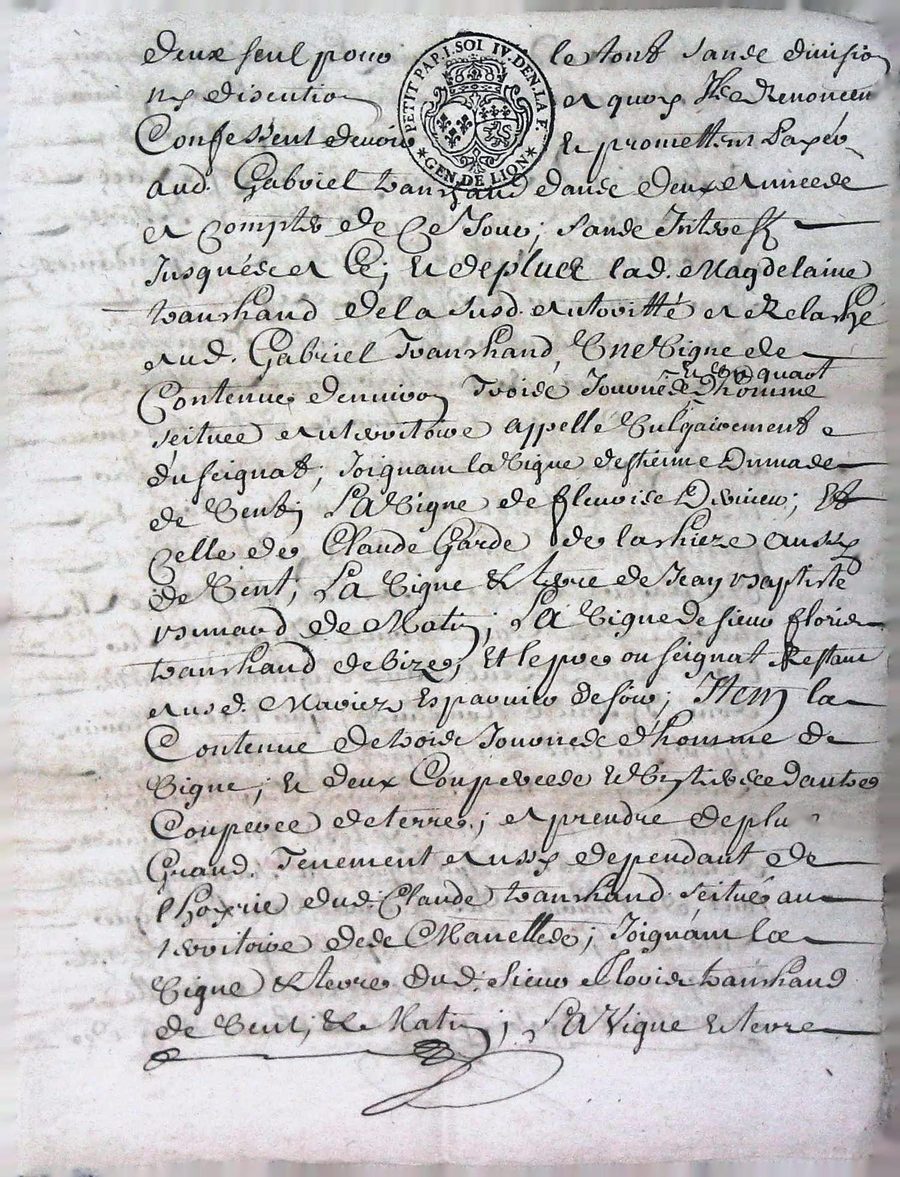 deux seul pour le tout sans division
ny discution et quoy Ils Renoncent
Confessent devoir Et promettent payer
aud. Gabriel tranchand dans deux années
et compter de Ce Jour; sans Interest
Jusques et Ce; Et deplus lad. Magdelaine
tranchand de la susd. authoritté a Relaché
aud. Gabriel Tranchand, Une Vigne de
Et Un quart
Contenue denviron Trois Journées d'homme
scituee au territoire appellé Vulgairement
du seignat, Joignant la Vigne destienne Dumas
de Vent; La Vigne de fleurie ; Et
Celle de Claude Garde de larhieze aussy
de Vent; La Vigne & terre de Jean baptiste
de Matin; La Vigne de sieur floris
tranchand de bize; Et le pre ou seignat Restant
aud. Mariez Esparvier de soir; Item la
Contenue de trois Journées d'homme de
Vigne; Et deux Couperées Et d'autre
Couperee de terre; a prendre de plu
Grand Tenement aussy dependant de
lhoyrie dud. Claude tranchand scitué au
territoire de Manelles; Joignant la
Vigne & terre dud. Sieur floris tranchand
de Vent; & Matin; La Vigne Et terre
PETIT PAP. I. SOL IV. DEN. LA F.
GEN. DE LION